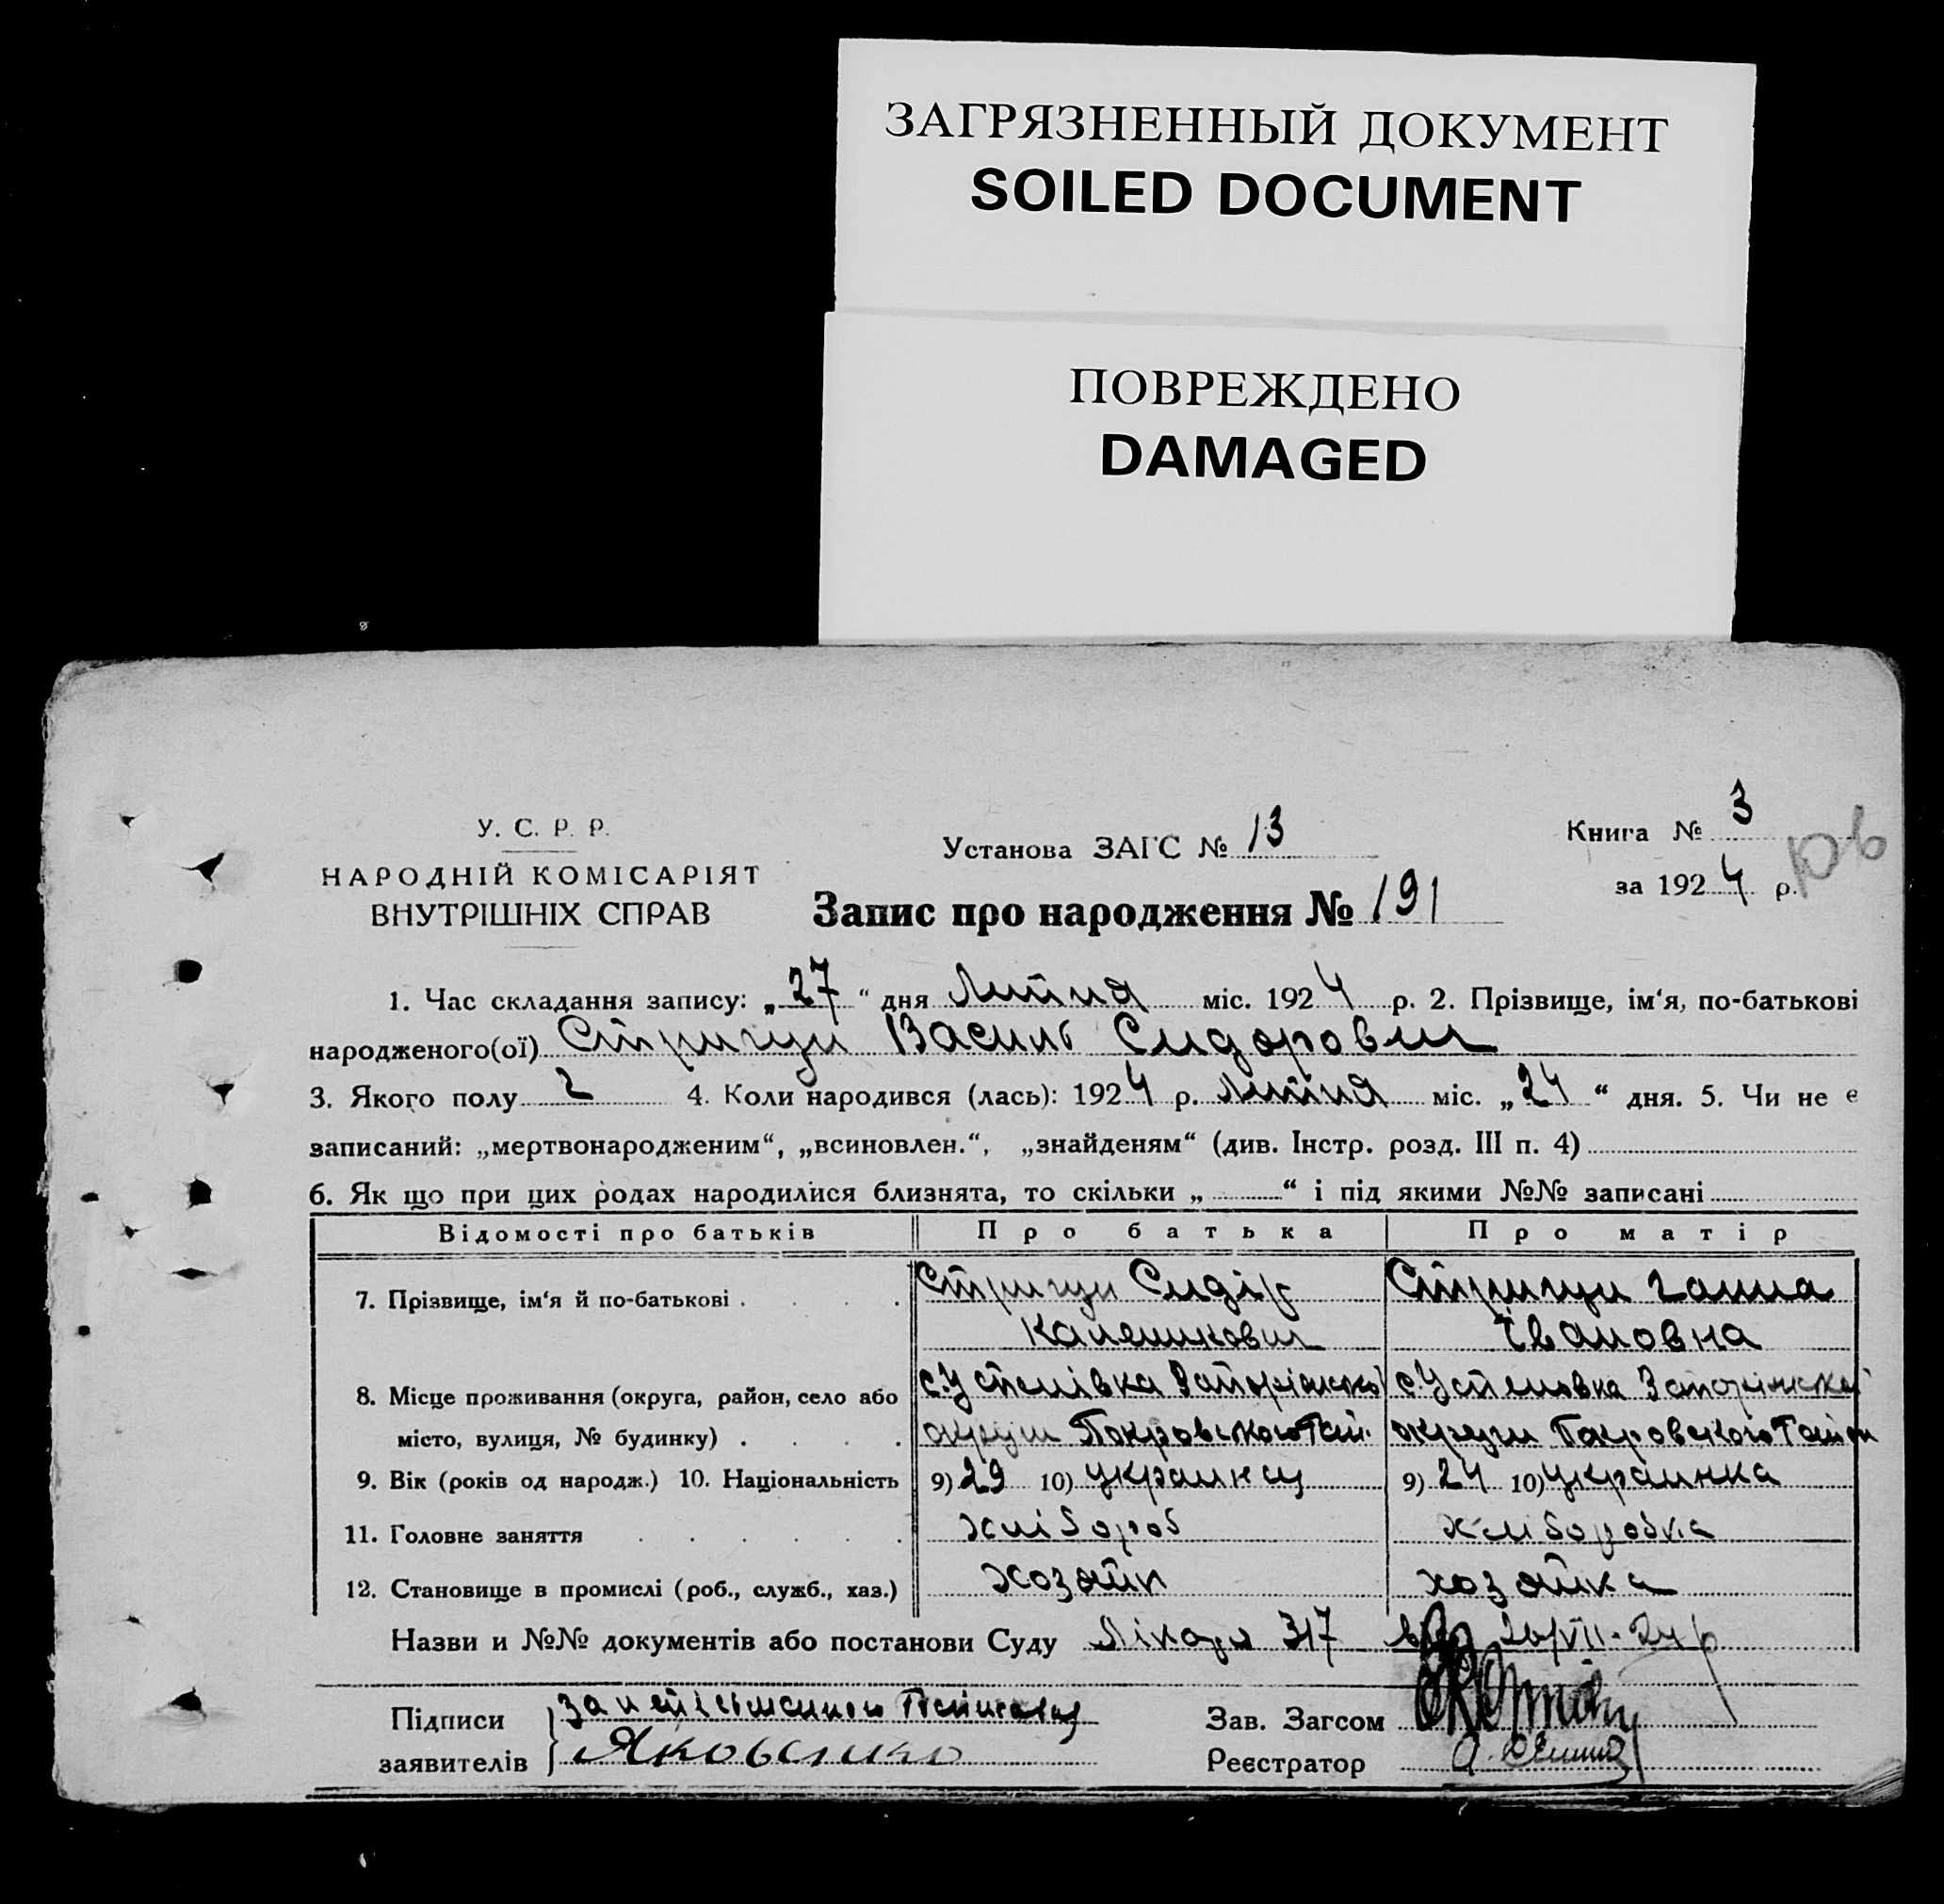 ЗАГРЯЗНЕННЫЙ ДОКУМЕНТ
SOILED DOCUMENT
ПОВРЕЖДЕНО
DAMAGED
У. С. Р. Р.
НАРОДНІЙ КОМІСАРІЯТ
ВНУТРІШНІХ СПРАВ
Установа ЗАГС № 13
Запис про народження № 191
Книга № 3
за 1924 р.
1. Час складання запису: „27“ дня Липня міс. 1924 р. 2. Прізвище, ім‘я, по-батькові
народженого(ої) Стригун Василь Сидорович
3. Якого полу ч 4. Коли народився (лась): 1924 р. липня міс. „24“ дня. 5. Чи не є
записаний: „мертвонародженим“, „всиновлен.“, „знайденям“ (див. Інстр. розд. III п. 4)
6. Як що при цих родах народилися близнята, то скільки „ “ і під якими №№ записані
Відомості про батьків Про батька Про матір
7. Прізвище, ім‘я й по-батькові Стригун Сидір Стригун Ганна
Каленикович Івановна
8. Місце проживання (округа, район, село або с. Устенівка с. Устеновка
місто, вулиця, № будинку) округи Покровського Рай. округи Покровського
9. Вік (років од народж.) 10. Національність 9) 29 10) украинец 9) 24 10) украинка
11. Головне заняття хлібороб хліборобка
12. Становище в промислі (роб., служб., хаз.) хозяин хозяйка
Назви и №№ документів або постанови Суду Лікаря 317 26/VII-24 р
Підписи за
заявителів Яковенко
Зав. Загсом
Реєстратор